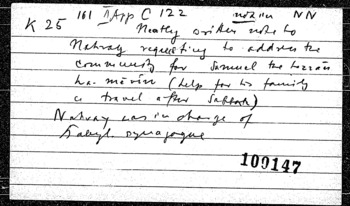 K 25 161 II App C 122 not in NN
Neatly written note to
Nahray requesting to address the
community for Samuel the hazzān
ha-mēvīn (help for his family
& travel after Sabbath)
Nahray was in charge of
Babyl. synagogue
109147